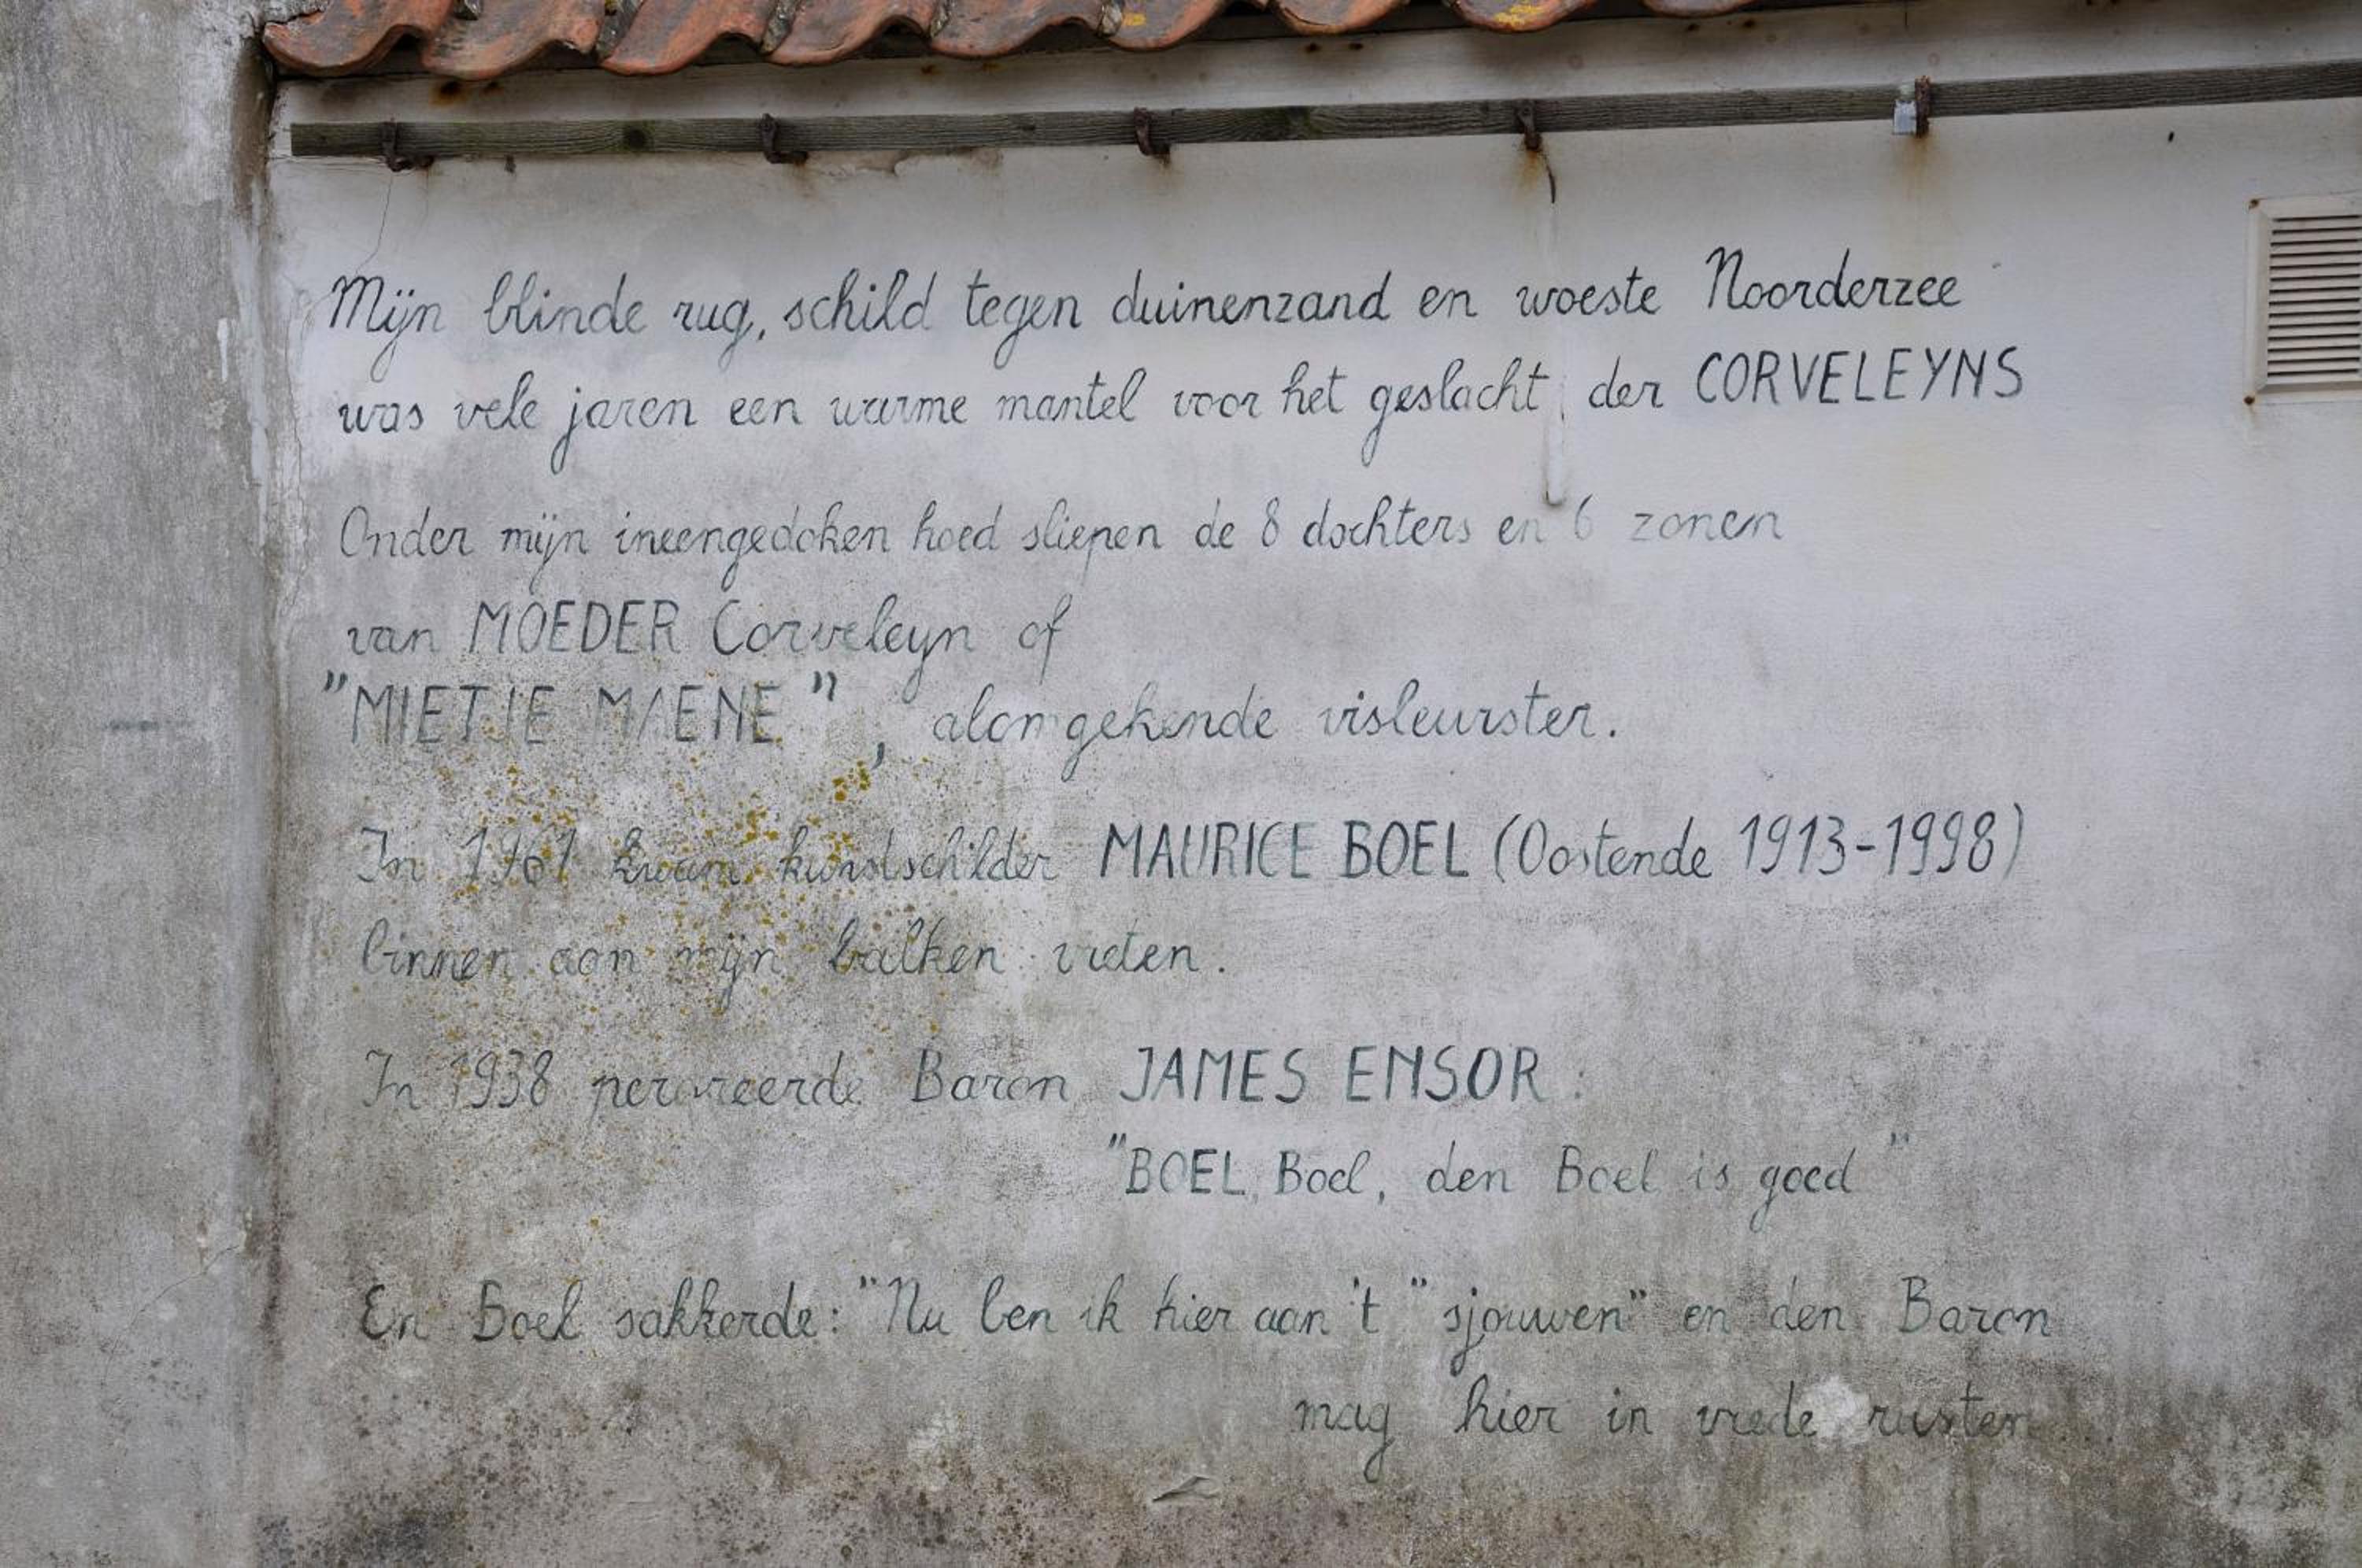 Mijn blinde rug, schild tegen duinenzand en woeste Noorderzee
was vele jaren een warme mantel voor het geslacht der CORVELEYNS
Onder mijn ineengedoken hoed sliepen de 8 dochters en 6 zonen
van MOEDER Corveleyn of
"MIETJE MAENE", alomgekende visleurster.
In 1961 kwam kunstschilder MAURICE BOEL (Oostende 1913-1998)
binnen aan mijn balken vreten.
In 1938 peroreerde Baron JAMES ENSOR:
"BOEL, Boel, den Boel is goed"
En Boel sakkerde: "Nu ben ik hier aan 't "sjouwen" en den Baron
mag hier in vrede rusten...